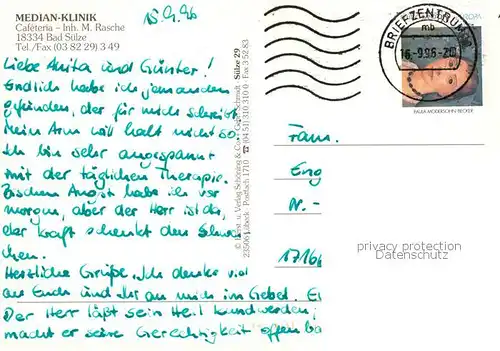 MEDIAN-KLINIK
Caféteria - Inh. M. Rasche
18334 Bad Sülze
Tel./Fax (03 82 29) 3 49
15.9.96
Liebe Anita und Günter!
Endlich habe ich jemanden
gefunden, der für mich schreibt.
Mein Arm will halt nicht so.
Ich bin sehr angespannt
mit der täglichen Therapie.
Bischen Angst habe ich vor
morgen, aber der Herr ist da,
der Kraft schenkt den Schwa
chen.
Herzliche Grüße. Ich denke viel
an Euch und Ihr an mich im Gebet.
Der Herr läßt sein Heil kundwerden,
macht er seine Gerechtigkeit offenba
© Foto u. Verlag Schöning & Co + Gebr. Schmidt
23506 Lübeck · Postfach 1710 ☎ (04 51) 310 310 0 · Fax 3 52 83
Sülze 29
BRIEFZENTRUM
mb
16.-9.96-20
EUROPA
PAULA MODERSOHN-BECKER
Fam.
Eng
Nr. -
1716
privacy protection
Datenschutz